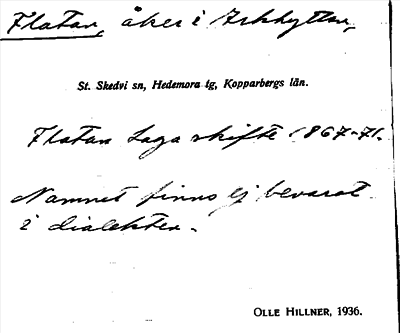 Flatan, åker i Arkhyttan,
St. Skedvi sn, Hedemora tg, Kopparbergs län.
Flatan Laga skifte 1867-71.
Namnet finns ej bevarat
i dialekten.
OLLE HILLNER, 1936.